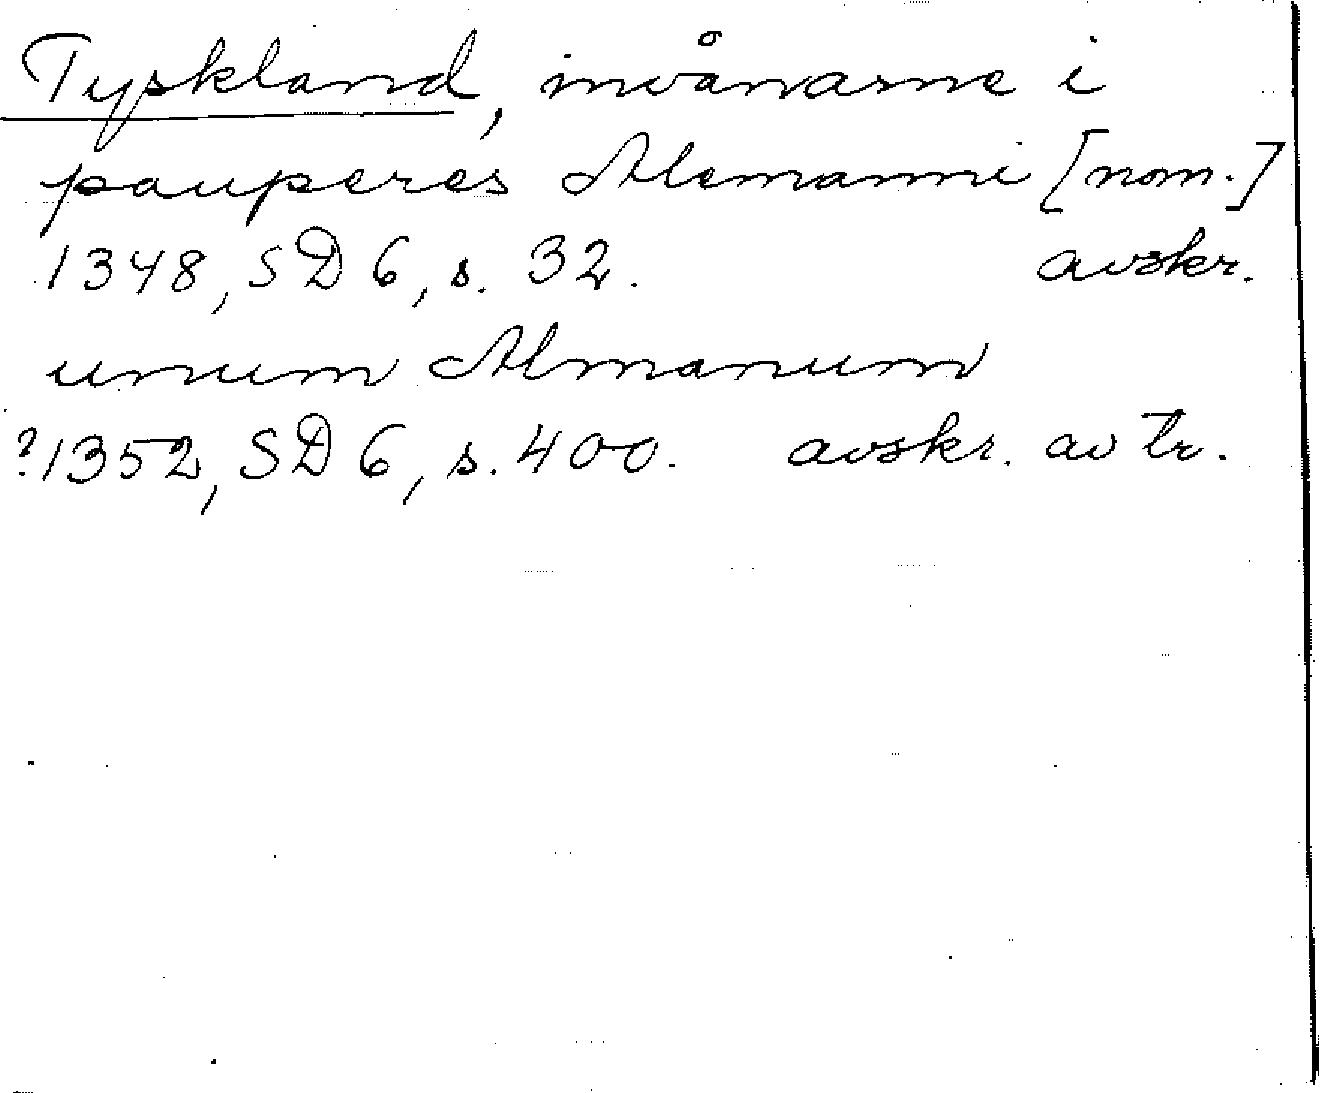 Tyskland, invånarne i
pauperes Alemanni [nom.]
1348, SD 6, s. 32. avskr.
unum Almanum
?1352, SD 6, s. 400. avskr. av tr.